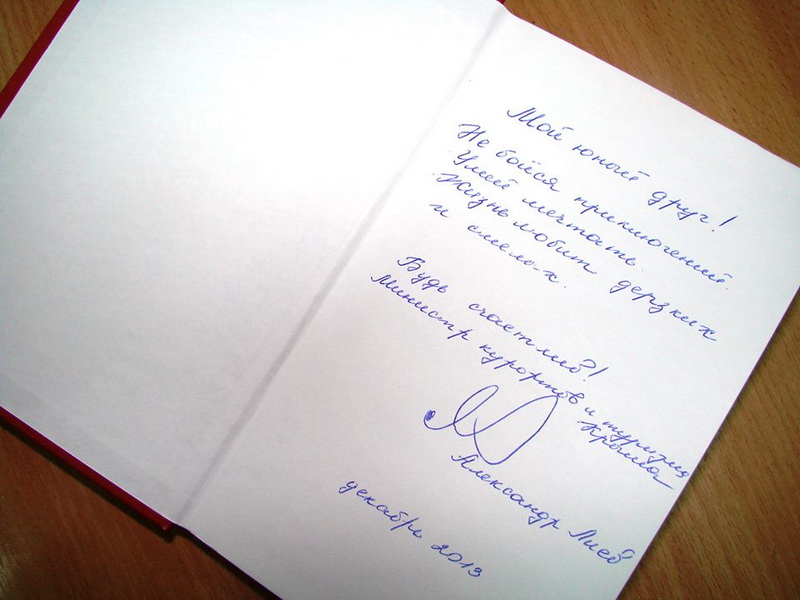 Мой юный друг!
Не бойся приключений.
Умей мечтать.
Жизнь любит дерзких
и смелых.
Будь счастлив!
Министр курортов и туризма
Крыма
Александр Лиев
декабрь 2013